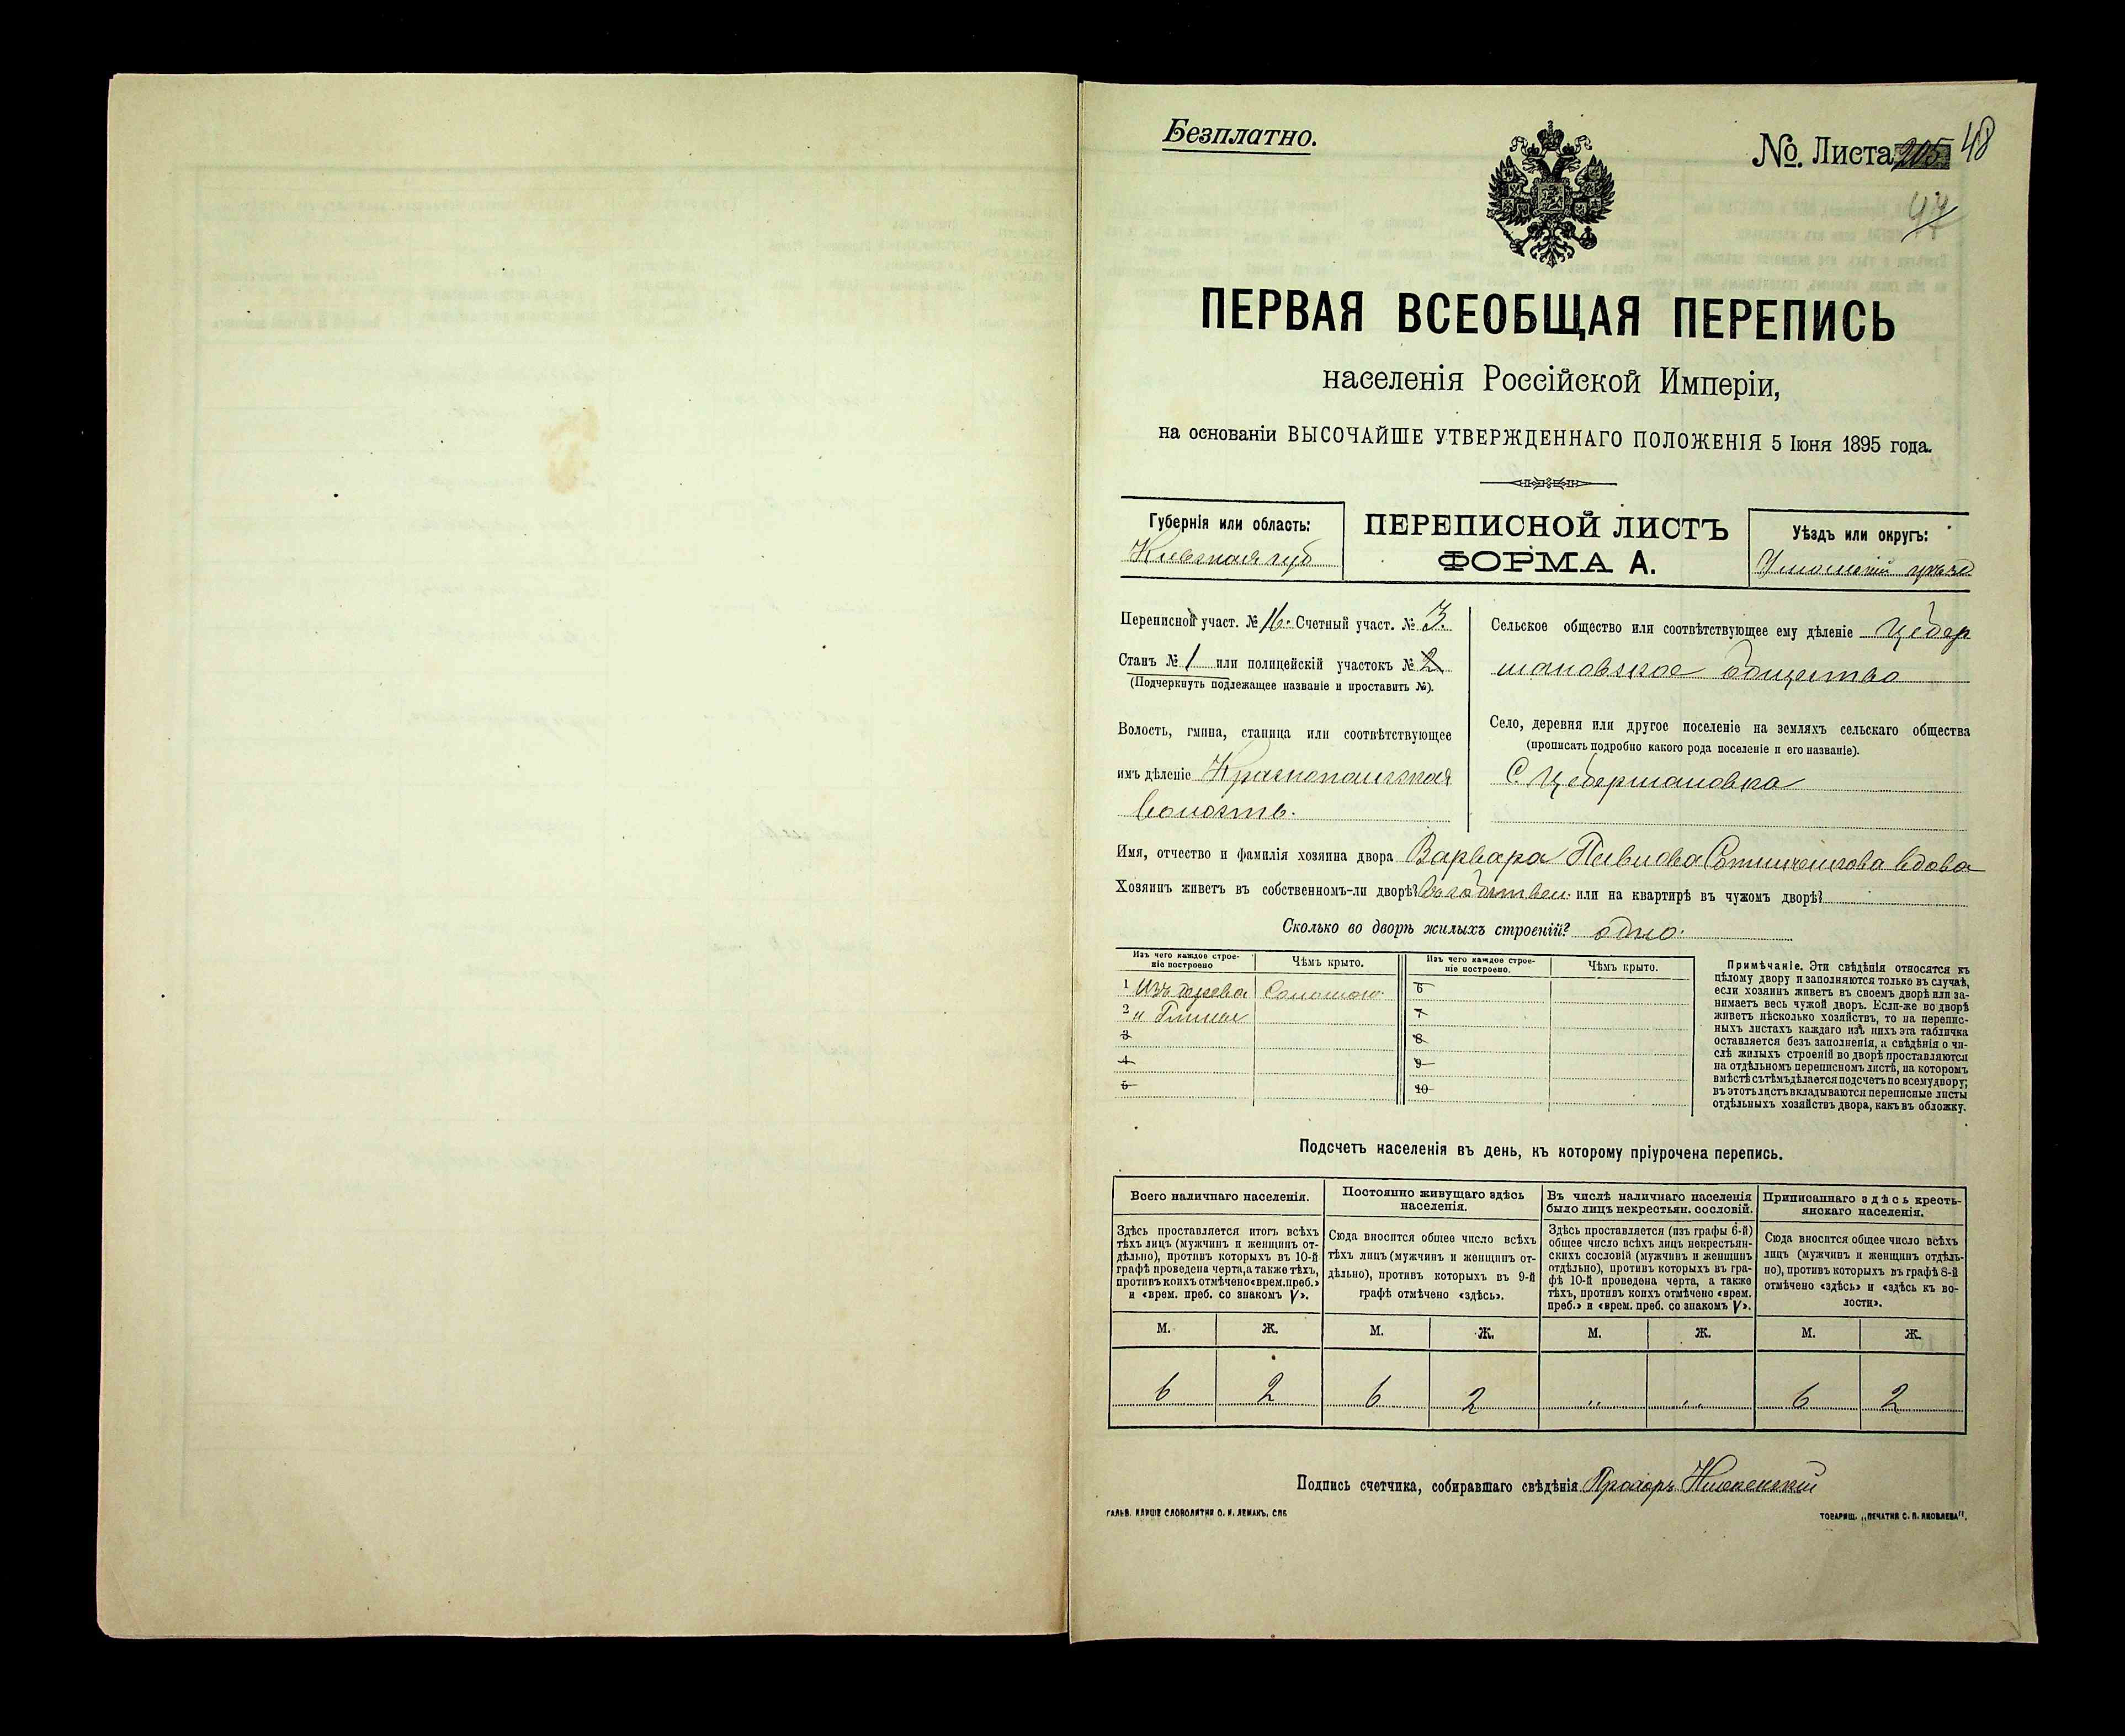 Безплатно.
№. Листа 205 48
47
ПЕРВАЯ ВСЕОБЩАЯ ПЕРЕПИСЬ
населенія Россійской Имперіи,
на основаніи ВЫСОЧАЙШЕ УТВЕРЖДЕННАГО ПОЛОЖЕНІЯ 5 Іюня 1895 года.
Губернія или область:
Кіевская губ
ПЕРЕПИСНОЙ ЛИСТЪ
ФОРМА А.
Уѣздъ или округъ:
Уманскій уѣздъ
Переписной участ. № 16. Счетный участ. № 3.
Станъ № 1 или полицейскій участокъ № 2
(Подчеркнуть подлежащее названіе и проставить №).
Волость, гмина, станица или соотвѣтствующее
имъ дѣленіе Краснопольская
волость.
Сельское общество или соотвѣтствующее ему дѣленіе Цебер
мановское общество
Село, деревня или другое поселеніе на земляхъ сельскаго общества
(прописать подробно какого рода поселеніе и его названіе).
С. Цебермановка
Имя, отчество и фамилія хозяина двора Варвара вдова
Хозяинъ живетъ въ собственномъ-ли дворѣ? въ собствен. или на квартирѣ въ чужомъ дворѣ?
Сколько во дворѣ жилыхъ строеній? одно.
Изъ чего каждое строе-
ніе построено
Чѣмъ крыто.
Изъ чего каждое строе-
ніе построено.
Чѣмъ крыто.
1 Изъ дерева Соломою 6
2 и Глины 7
3 8
4 9
5 10
Примѣчаніе. Эти свѣдѣнія относятся къ
цѣлому двору и заполняются только въ случаѣ,
если хозяинъ живетъ въ своемъ дворѣ или за-
нимаетъ весь чужой дворъ. Если-же во дворѣ
живетъ нѣсколько хозяйствъ, то на перепис-
ныхъ листахъ каждаго изъ нихъ эта табличка
оставляется безъ заполненія, а свѣдѣнія о чи-
слѣ жилыхъ строеній во дворѣ проставляются
на отдѣльномъ переписномъ листѣ, на которомъ
вмѣстѣ съ тѣмъ дѣлается подсчетъ по всему двору;
въ этотъ листъ вкладываются переписные листы
отдѣльныхъ хозяйствъ двора, какъ въ обложку.
Подсчетъ населенія въ день, къ которому пріурочена перепись.
Всего наличнаго населенія.
Здѣсь проставляется итогъ всѣхъ
тѣхъ лицъ (мужчинъ и женщинъ от-
дѣльно), противъ которыхъ въ 10-й
графѣ проведена черта, а также тѣхъ,
противъ коихъ отмѣчено «врем. преб.»
и «врем. преб. со знакомъ V».
Постоянно живущаго здѣсь
населенія.
Сюда вносится общее число всѣхъ
тѣхъ лицъ (мужчинъ и женщинъ от-
дѣльно), противъ которыхъ въ 9-й
графѣ отмѣчено «здѣсь».
Въ числѣ наличнаго населенія
было лицъ некрестьян. сословій.
Здѣсь проставляется (изъ графы 6-й)
общее число всѣхъ лицъ некрестьян-
скихъ сословій (мужчинъ и женщинъ
отдѣльно), противъ которыхъ въ гра-
фѣ 10-й проведена черта, а также
тѣхъ, противъ коихъ отмѣчено «врем.
преб.» и «врем. преб. со знакомъ V».
Приписаннаго здѣсь кресть-
янскаго населенія.
Сюда вносится общее число всѣхъ
лицъ (мужчинъ и женщинъ отдѣль-
но), противъ которыхъ въ графѣ 8-й
отмѣчено «здѣсь» и «здѣсь къ во-
лости».
М. Ж. М. Ж. М. Ж. М. Ж.
6 2 6 2 „ „ 6 2
Подпись счетчика, собиравшаго свѣдѣнія Прохоръ
ГАЛЬВ. КЛИШЕ СЛОВОЛИТНИ О. И. ЛЕМАНЪ, СПБ
ТОВАРИЩ. „ПЕЧАТНЯ С. П. ЯКОВЛЕВА".